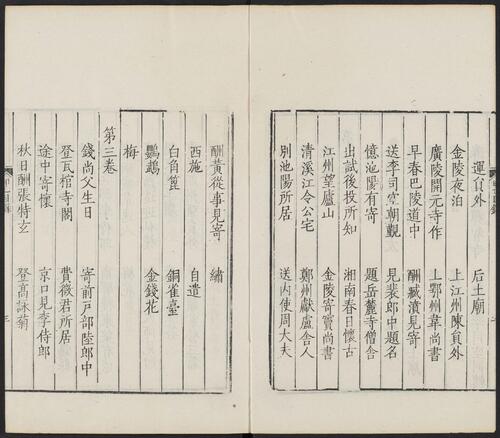 運員外　后土廟
金陵夜泊　上江州陳員外
廣陵開元寺作　上鄂州韋尚書
早春巴陵道中　酬臧濆見寄
送李司空朝覲　見裴郎中題名
憶池陽有寄　題岳麓寺僧舍
出試後投所知　湘南春日懷古
江州望廬山　金陵寄竇尚書
清溪江令公宅　鄭州獻盧舍人
別池陽所居　送內使周大夫
酬黃從事見寄　繡
西施　自遣
白角篦　銅雀臺
鸚鵡　金錢花
梅
第三卷
錢尚父生日　寄前戶部陸郎中
登瓦棺寺閣　費徵君所居
途中寄懷　京口見李侍郎
秋日酬張特玄　登高詠菊